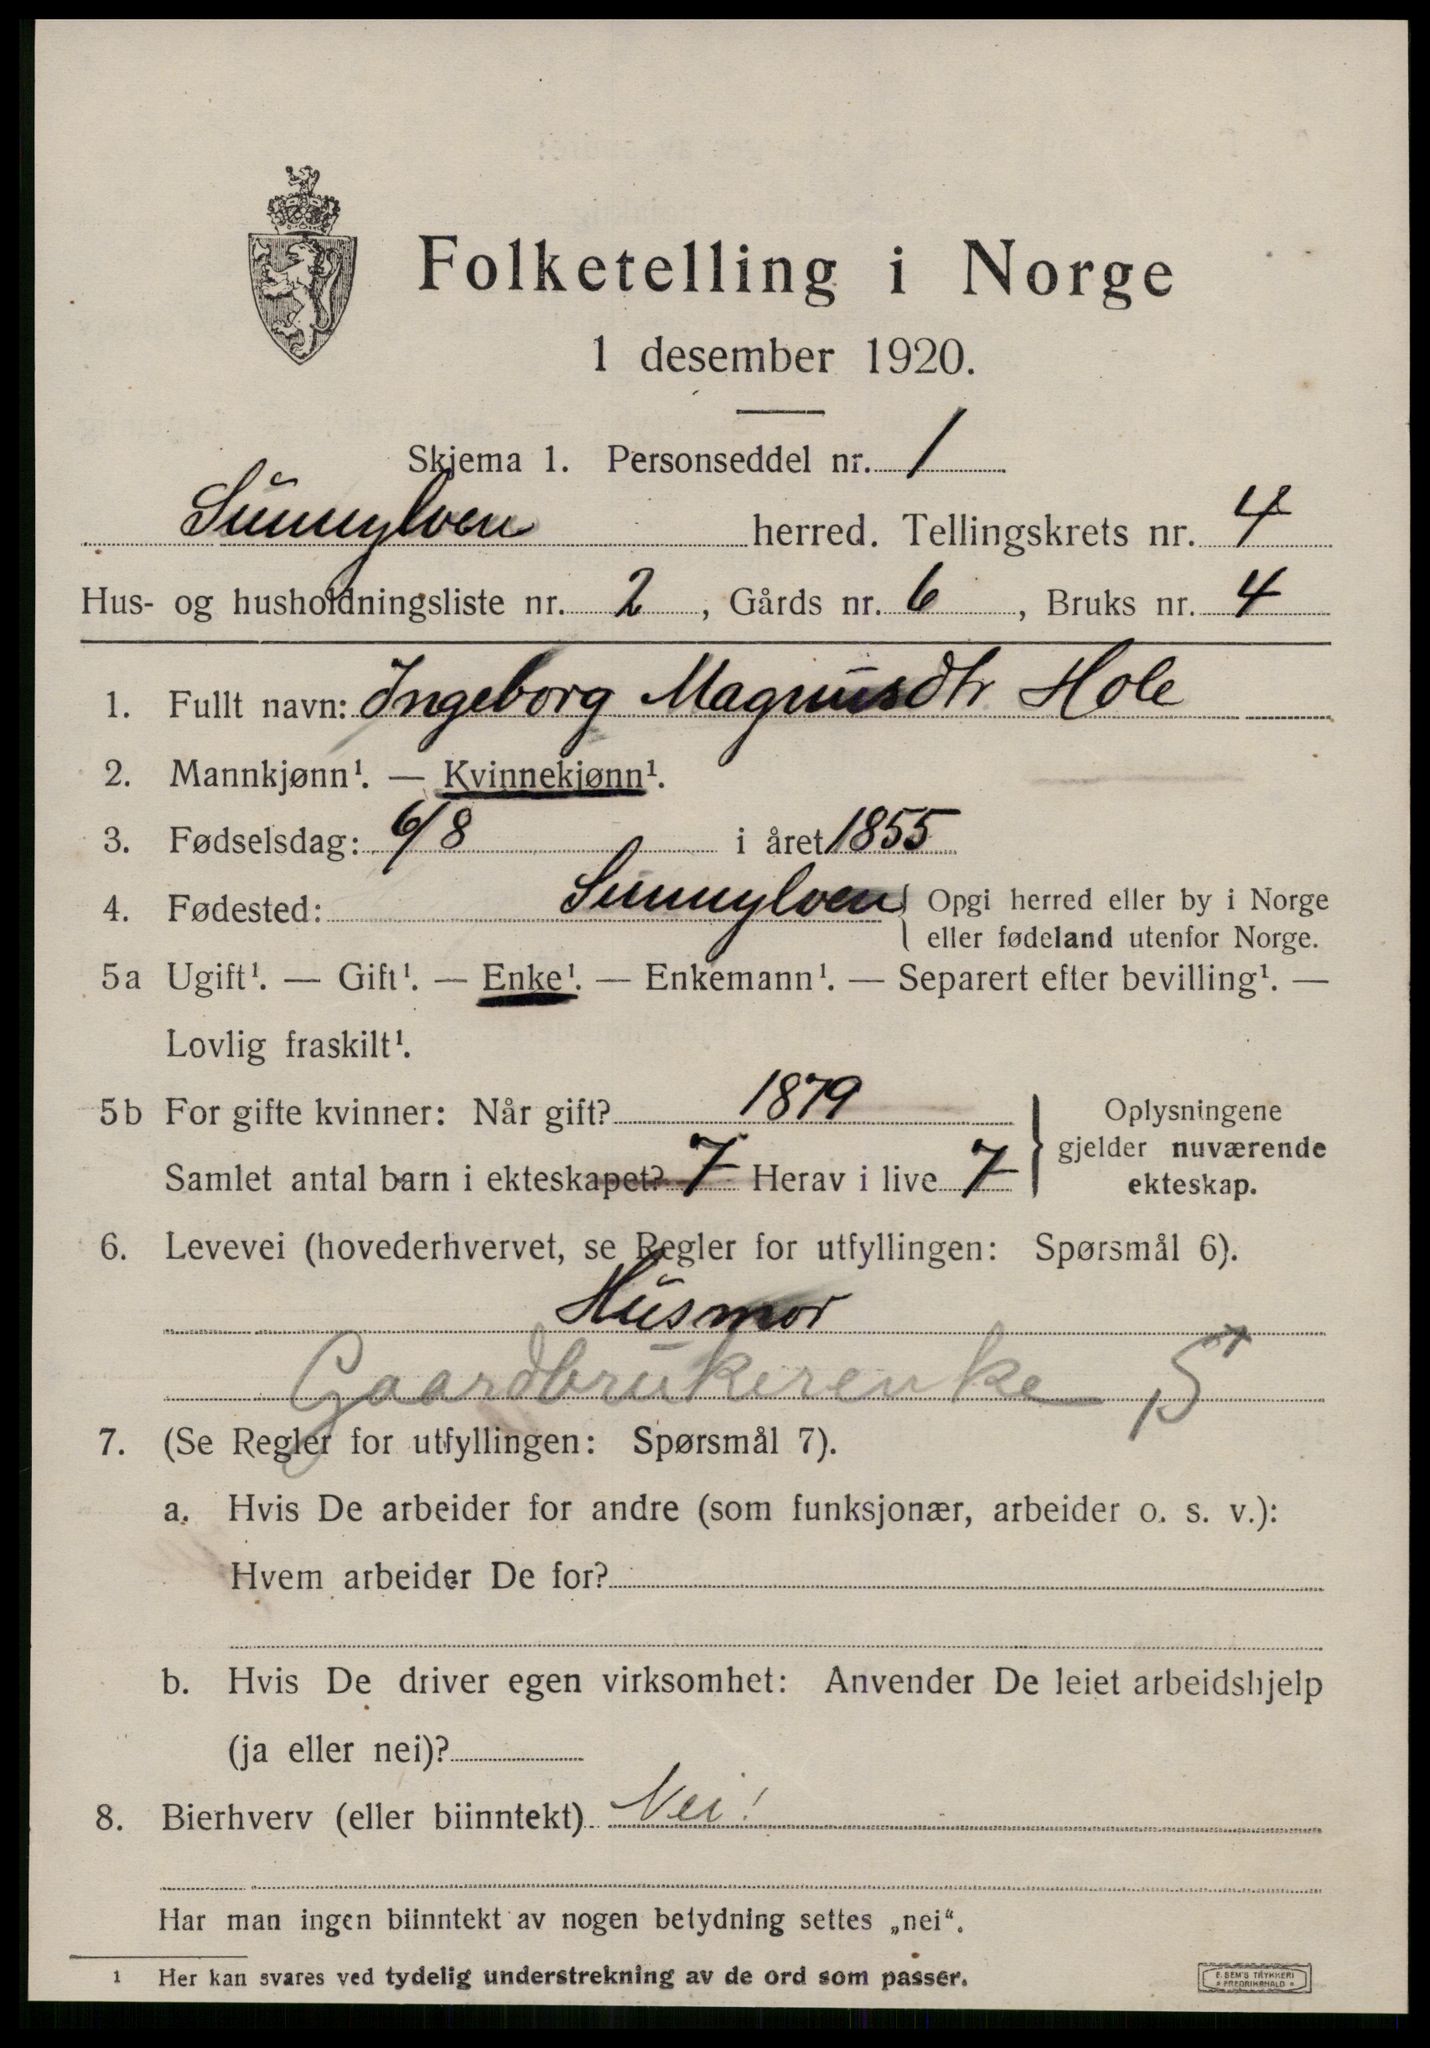 Folketelling i Norge
1 desember 1920.
Skjema 1. Personseddel nr. 1
Sunnylven herred. Tellingskrets nr. 4
Hus- og husholdningsliste nr. 2, Gårds nr. 6, Bruks nr. 4
1. Fullt navn: Ingeborg Magnusdtr Hole
2. Mannkjønn¹. — Kvinnekjønn¹.
3. Fødselsdag: 6/8 i året 1855
4. Fødested: Sunnylven { Opgi herred eller by i Norge
eller fødeland utenfor Norge.
5a Ugift¹. — Gift¹. — Enke¹. — Enkemann¹. — Separert efter bevilling¹. —
Lovlig fraskilt¹.
5b For gifte kvinner: Når gift? 1879
Samlet antal barn i ekteskapet? 7 Herav i live 7
Oplysningene
gjelder nuværende
ekteskap.
6. Levevei (hovederhvervet, se Regler for utfyllingen: Spørsmål 6).
Husmor
Gaardbrukerenke
7. (Se Regler for utfyllingen: Spørsmål 7).
a. Hvis De arbeider for andre (som funksjonær, arbeider o. s. v.):
Hvem arbeider De for?
b. Hvis De driver egen virksomhet: Anvender De leiet arbeidshjelp
(ja eller nei)?
8. Bierhverv (eller biinntekt) Nei!
Har man ingen biinntekt av nogen betydning settes „nei“.
1 Her kan svares ved tydelig understrekning av de ord som passer.
E. SEM'S TRYKKERI
FREDRIKSHALD